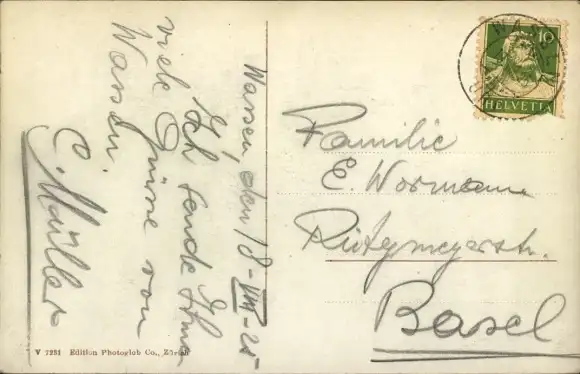 Wassen, den 18-VIII-25
Ich sende Ihnen
viele Grüsse von
Wassen.
C. Müller
Familie
E. Wormann
Rütymeyerstr.
Basel
10
HELVETIA
V 7231 Edition Photoglob Co., Zürich